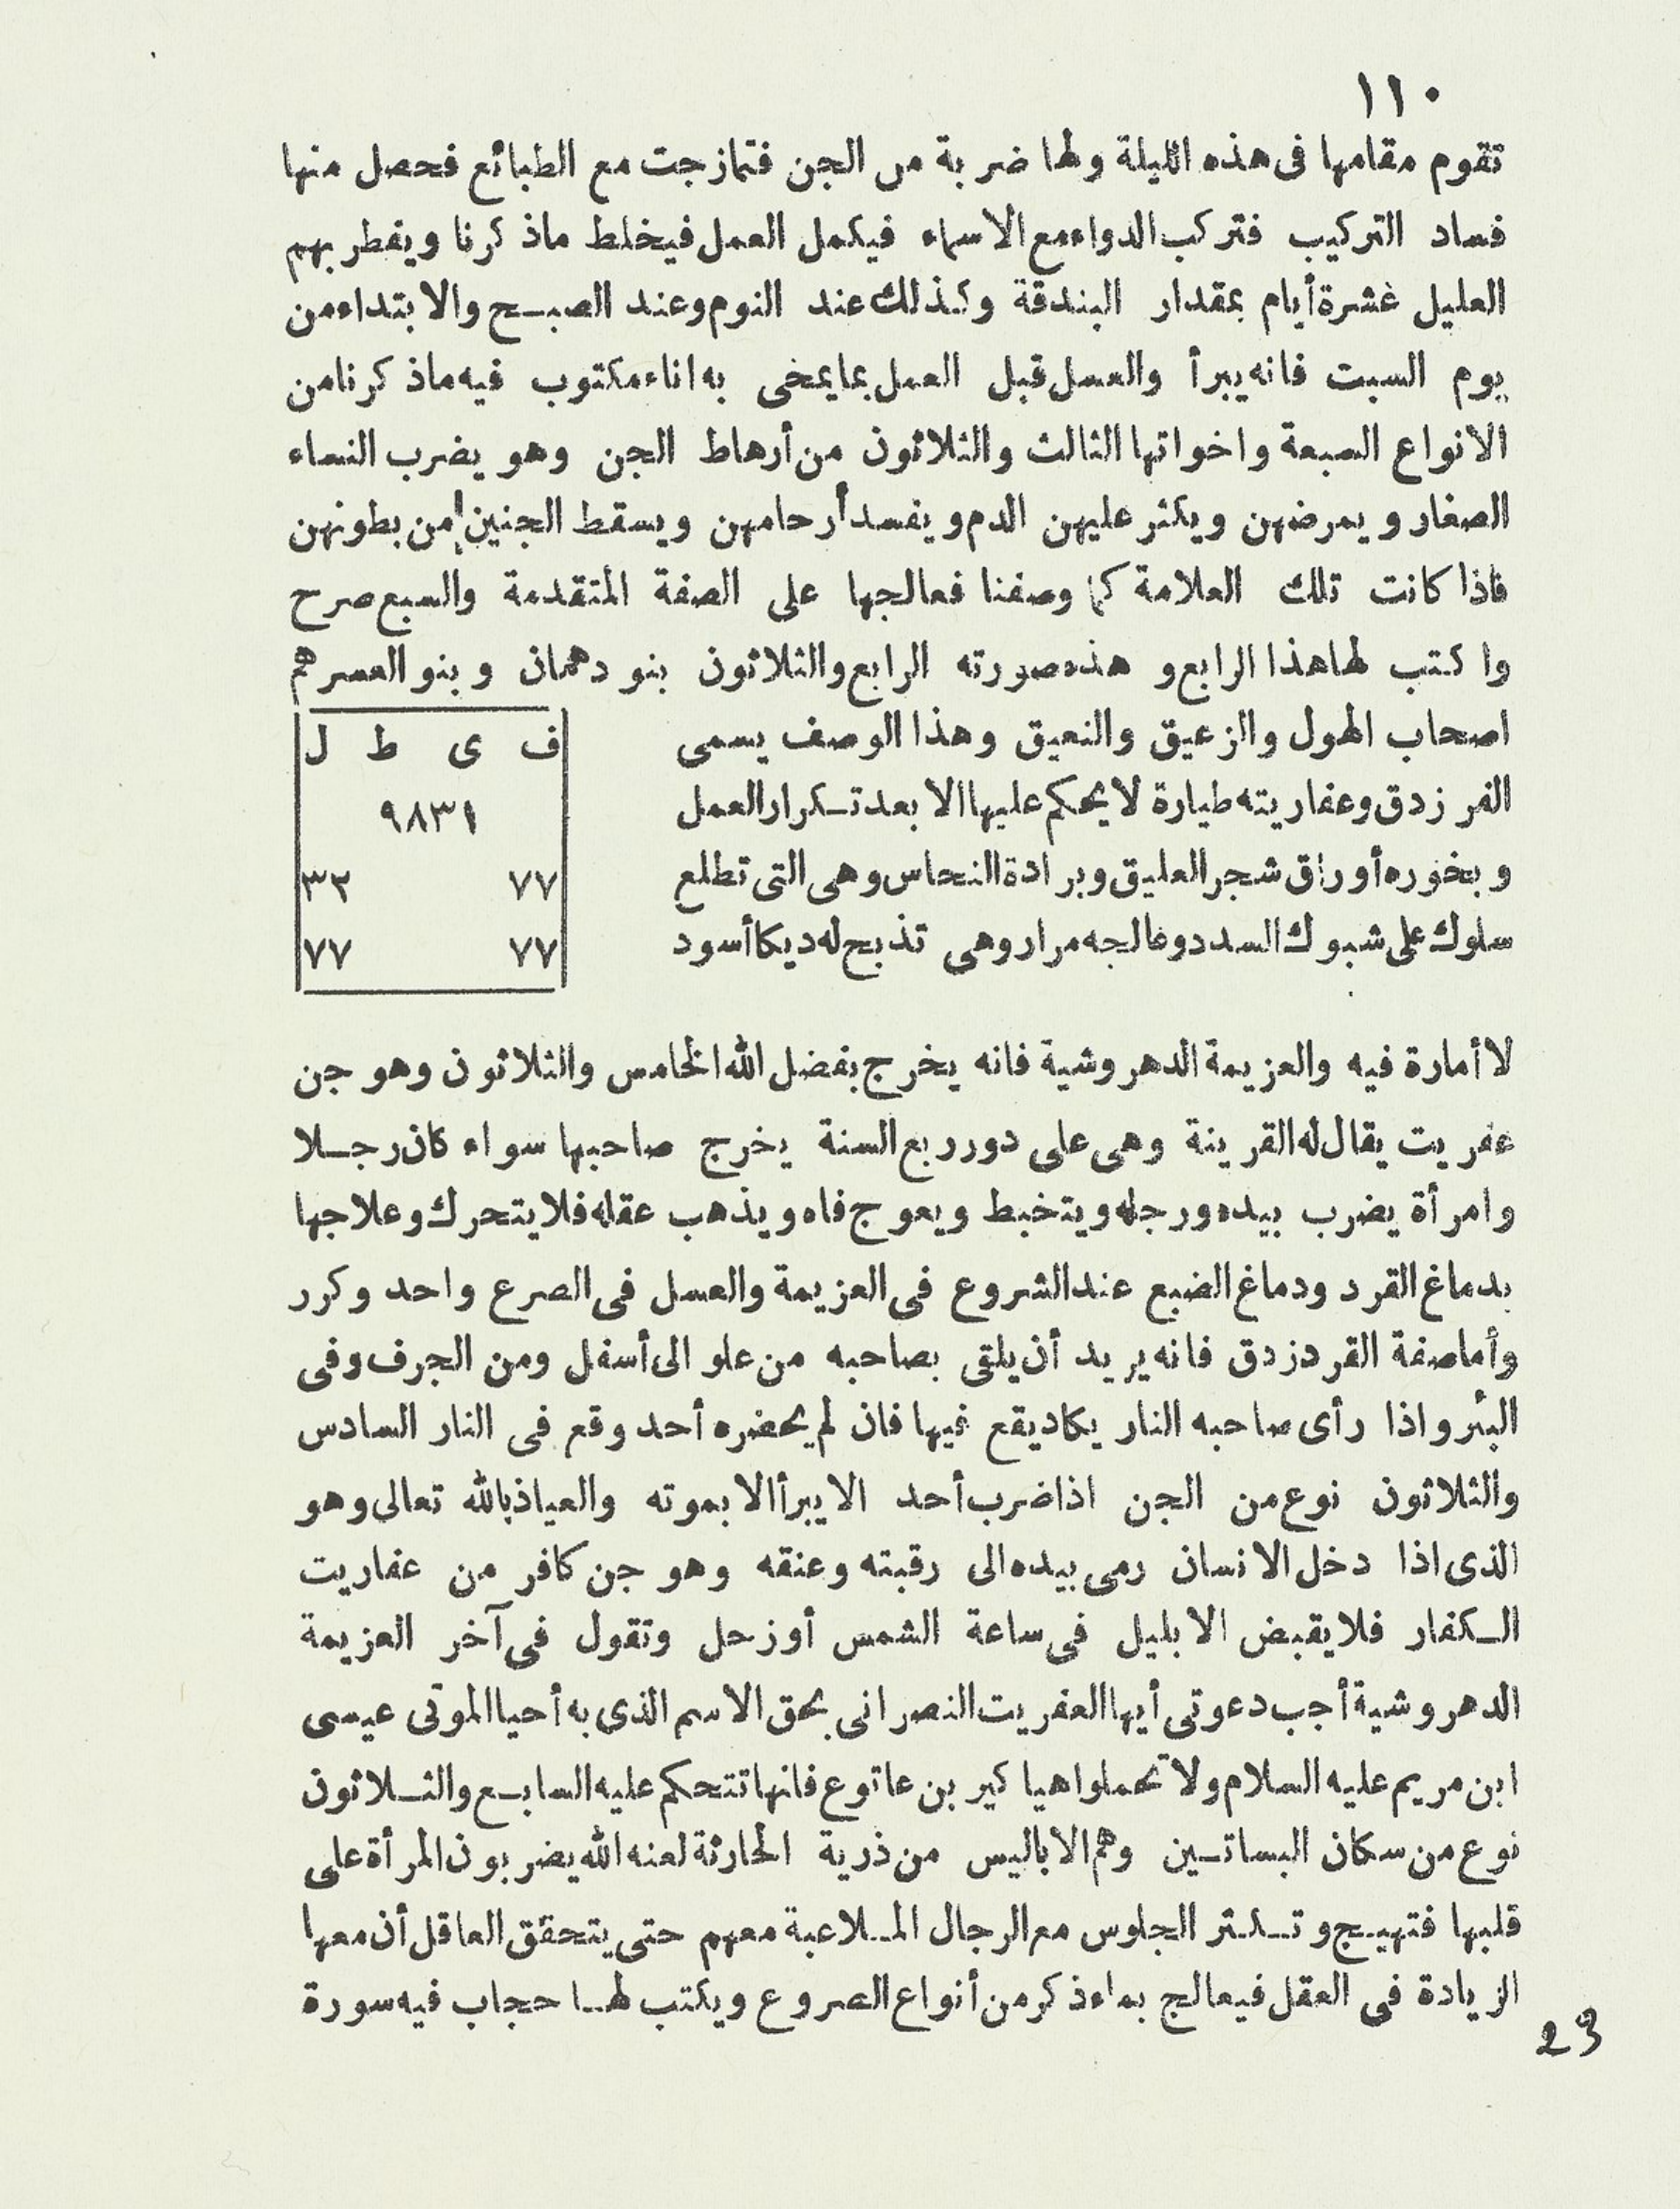 ١١٠
تقوم مقامها فى هذه الليلة ولها ضربة من الجن فتمازجت مع الطبائع فحصل منها
فساد التركيب فتركب الدواء مع الاسماء فيكمل العمل فيخلط ماذكرنا ويفطر بهم
العليل غشرة أيام بمقدار البندقة وكذلك عند النوم وعند الصبح والابتداء من
يوم السبت فانه يبرأ والعسل قبل العمل بما يمحى به اناء مكتوب فيه ماذكرنا من
الانواع السبعة واخواتها الثالث والثلاثون من أرهاط الجن وهو يضرب النساء
الصغار ويمرضهن ويكثر عليهن الدم ويفسد أرحامهن ويسقط الجنين من بطونهن
فاذا كانت تلك العلامة كما وصفنا فعالجها على الصفة المتقدمة والسبع صرح
واكتب لها هذا الرابع وهذه صورته الرابع والثلاثون بنو دهمان وبنو العسر هم
اصحاب الهول والزعيق والنعيق وهذا الوصف يسمى
الفرزدق وعفاريته طيارة لا يحكم عليها الا بعد تكرار العمل
وبخوره أوراق شجر العليق وبرادة النحاس وهى التى تطلع
سلوك على شبوك السدد وعالجه مرار وهى تذبح له ديكا أسود
ف ى ط ل
٩٨٣١
٧٧ ٣٢
٧٧ ٧٧
لا أمارة فيه والعزيمة الدهروشية فانه يخرج بفضل الله الخامس والثلاثون وهو جن
عفريت يقال له القرينة وهى على دور ربع السنة يخرج صاحبها سواء كان رجلا
وامرأة يضرب بيده ورجله ويتخبط ويعوج فاه ويذهب عقله فلا يتحرك وعلاجها
بدماغ القرد ودماغ الضبع عند الشروع فى العزيمة والعسل فى الصرع واحد وكرر
وأما صفة القردزدق فانه يريد أن يلقى بصاحبه من علو الى أسفل ومن الجرف وفى
البئر واذا رأى صاحبه النار يكاد يقع فيها فان لم يحضره أحد وقع فى النار السادس
والثلاثون نوع من الجن اذا ضرب أحد الايبرأ الا بموته والعياذ بالله تعالى وهو
الذى اذا دخل الانسان رمى بيده الى رقبته وعنقه وهو جن كافر من عفاريت
الكفار فلا يقبض الا بليل فى ساعة الشمس أو زحل وتقول فى آخر العزيمة
الدهروشية أجب دعوتى أيها العفريت النصرانى بحق الاسم الذى به أحيا الموتى عيسى
ابن مريم عليه السلام ولا تحملوا هيا كير بن عاتوع فانها تتحكم عليه السابع والثلاثون
نوع من سكان البساتين وهم الاباليس من ذرية الحارثة لعنه الله يضربون المرأة على
قلبها فتهيج وتكثر الجلوس مع الرجال الملاعبة معهم حتى يتحقق العاقل أن معها
الزيادة فى العقل فيعالج بماء ذكر من أنواع الصروع ويكتب لها حجاب فيه سورة
23